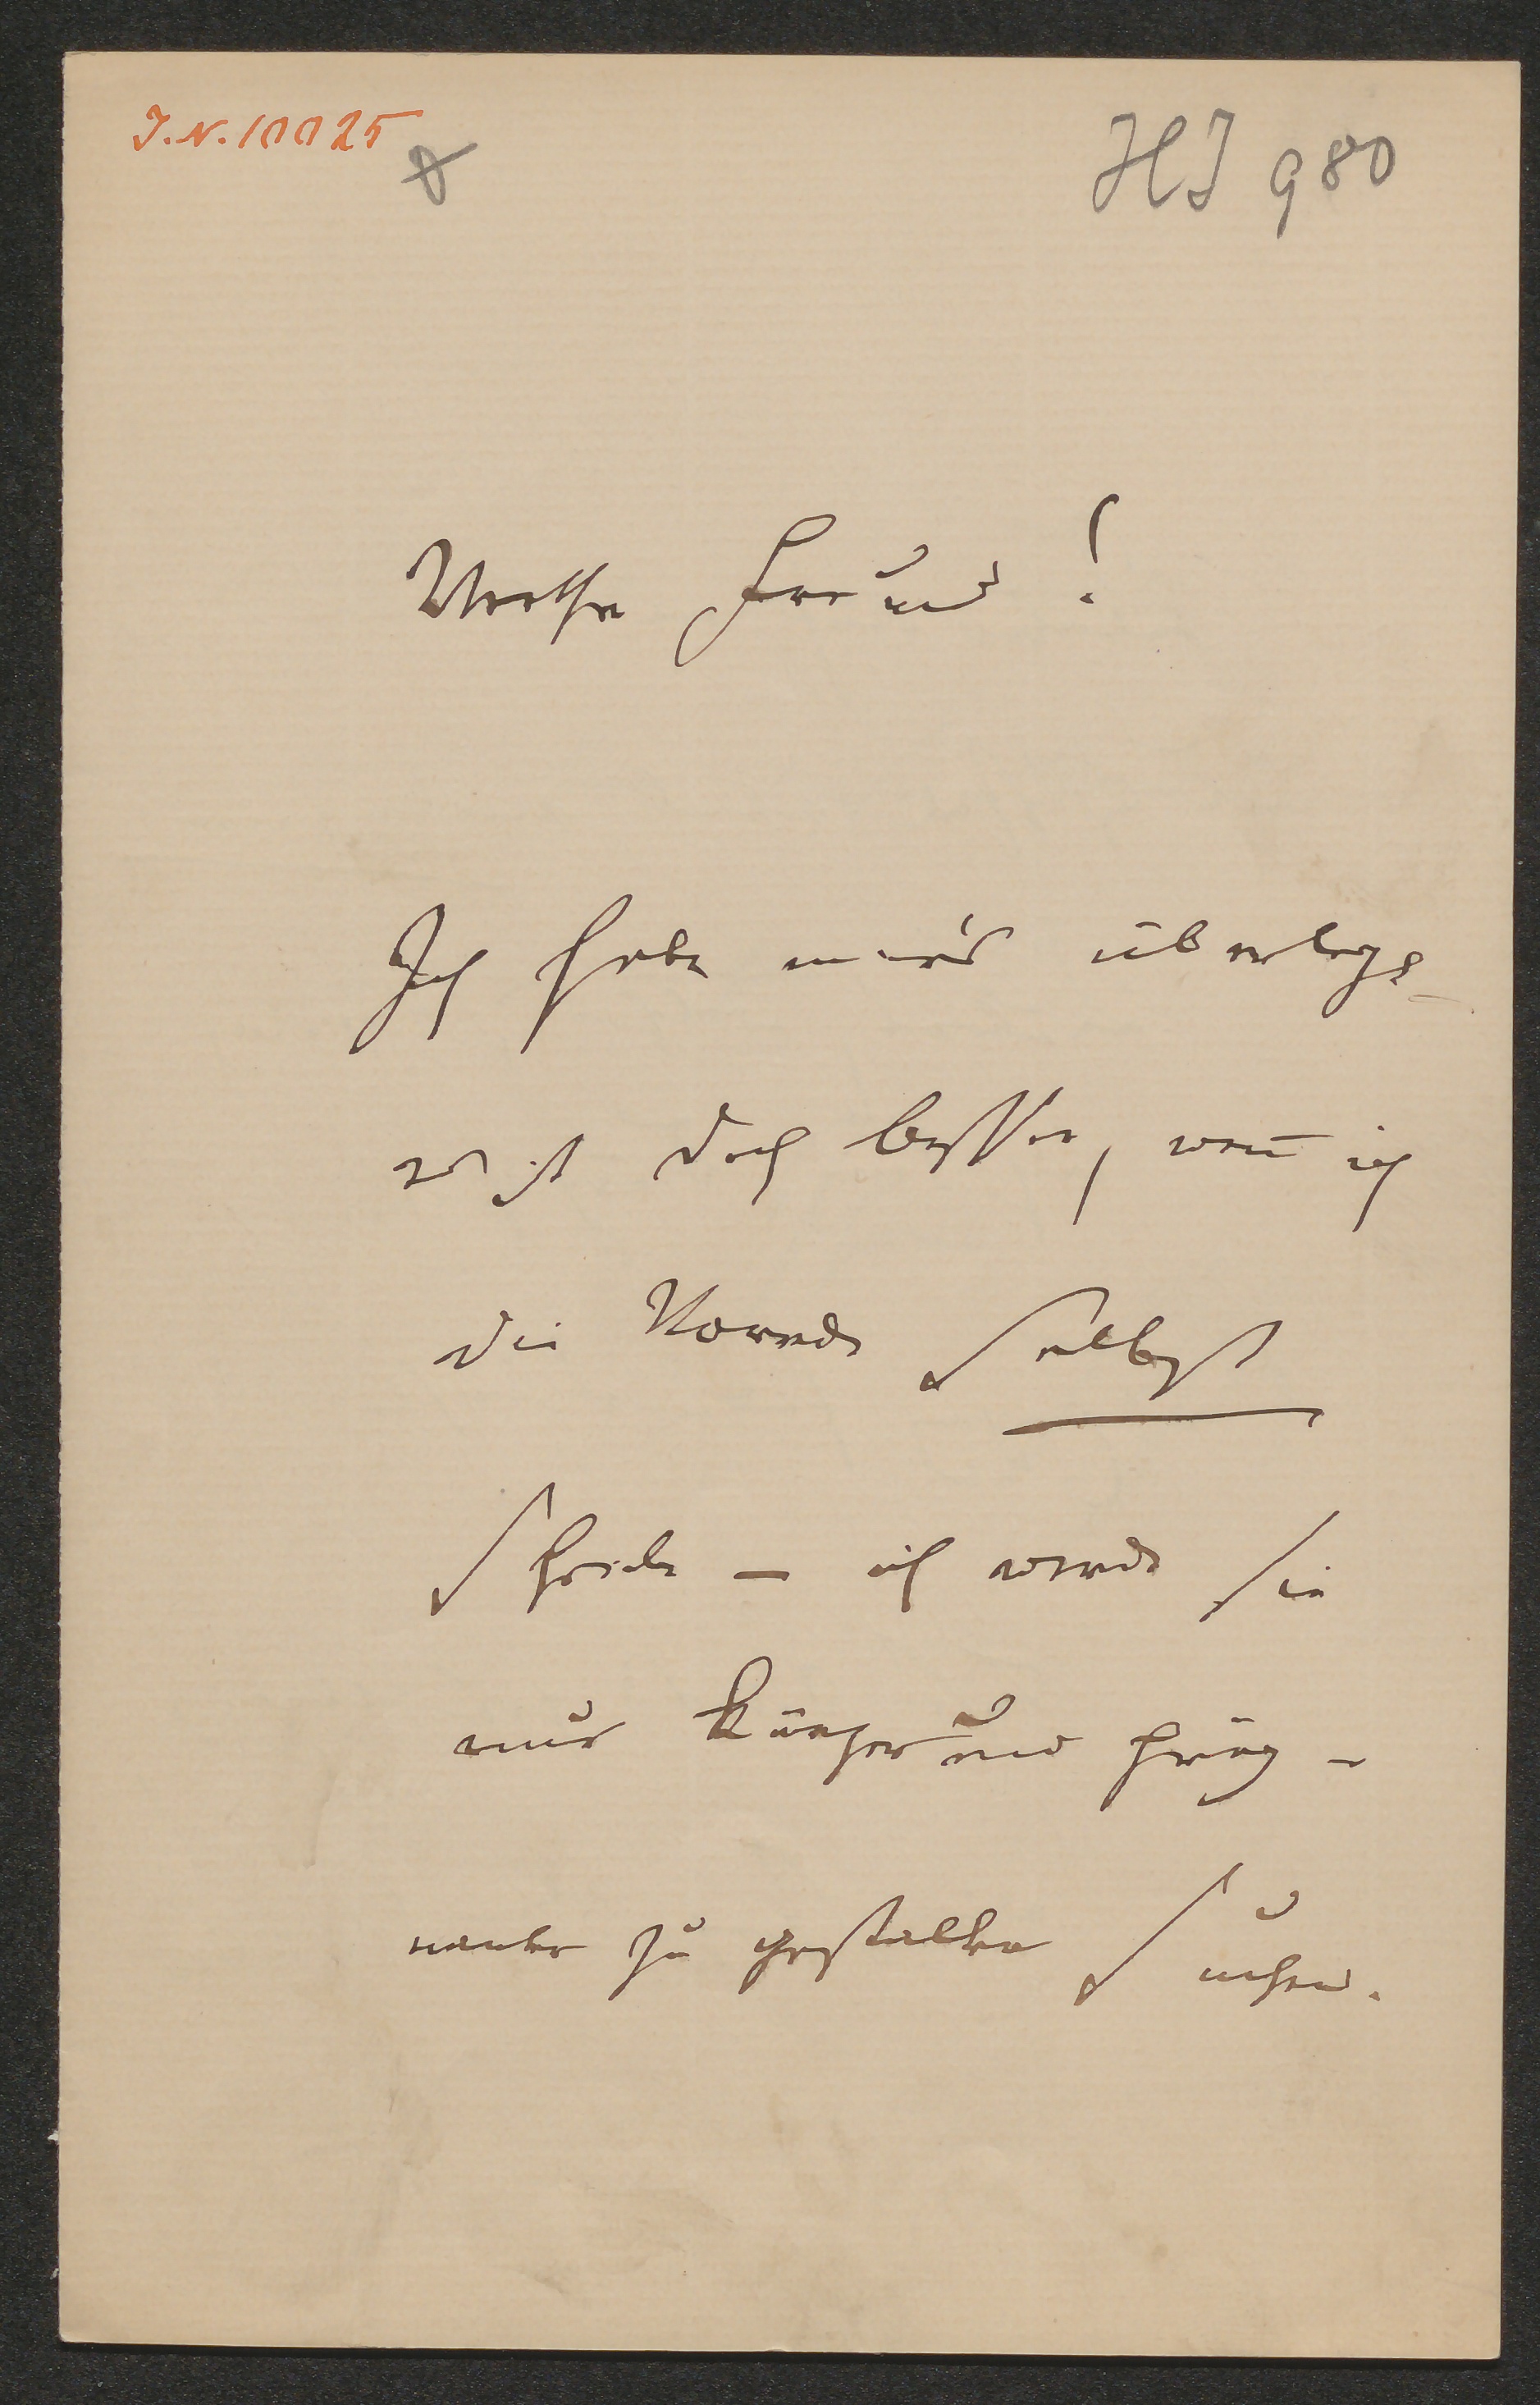 J.N. 10025
HJ 980
Werther Freund!
Ich habe mir's überlegt
es ist doch besser, wenn ich
die Vorrede selbst
schreibe – ich werde sie
nur kürzer und präg-
nanter zu gestalten suchen.